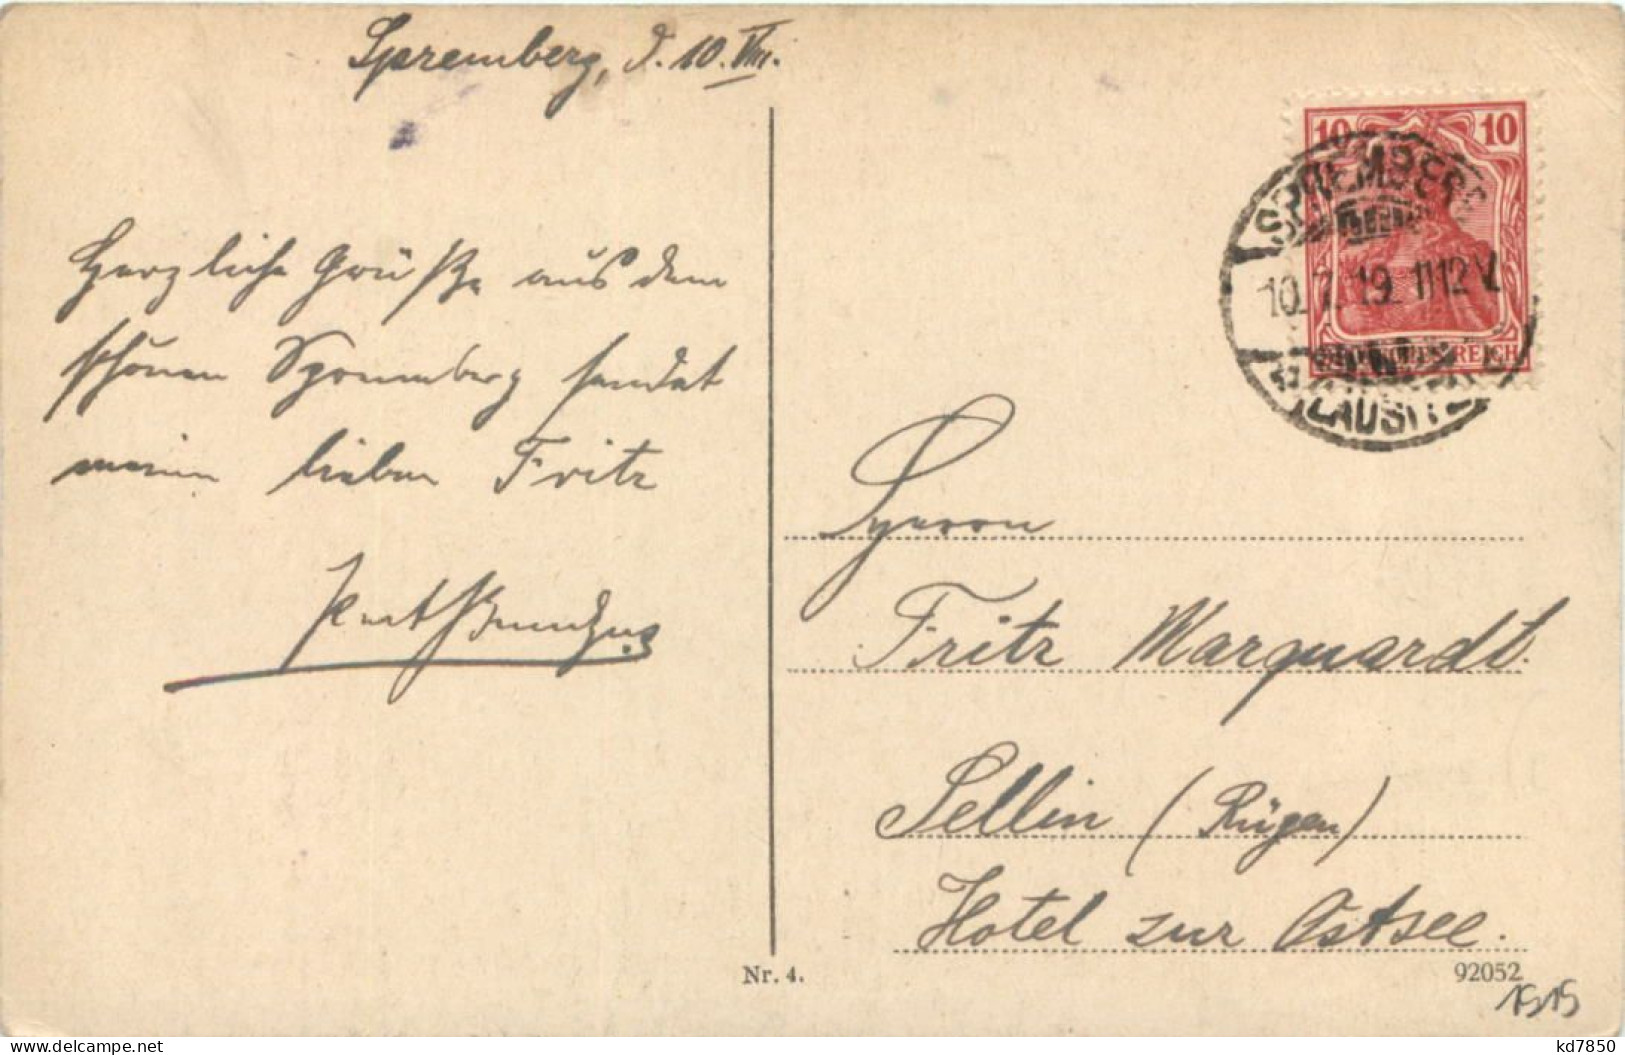 Spremberg, d. 10. VIII.
Herzliche Grüße aus dem
schönen Spremberg sendet
meinem lieben Fritz
Kurt
10 10
SPREMBERG
10.7.19. 11-12 V.
DEUTSCHES REICH
LAUSITZ
Herrn
Fritz Marquardt.
Sellin (Rügen)
Hotel zur Ostsee.
Nr. 4.
92052
1515
www.delcampe.net
kd7850